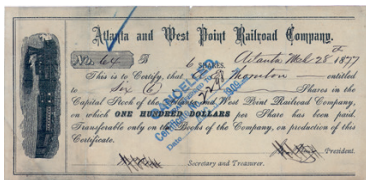 Atlanta and West Point Railroad Company.
No. 64 6 Shares Atlanta Mch 28th 1877
This is to Certify, that entitled
to Six (6) Shares in the
Capital Stock of the Atlanta and West Point Railroad Company,
on which ONE HUNDRED DOLLARS per Share has been paid.
Transferable only on the Books of the Company, on production of this
Certificate.
CANCELLED
President.
Secretary and Treasurer.